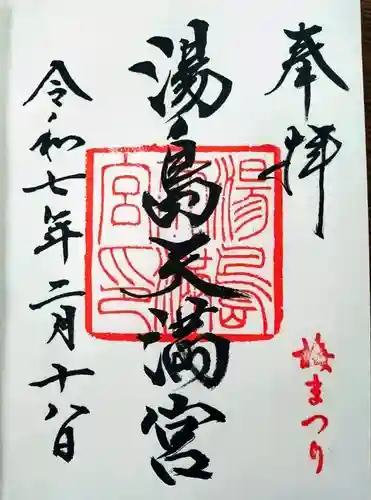 奉拝
湯島天満宮
湯島天満宮印
令和七年二月十八日
梅まつり